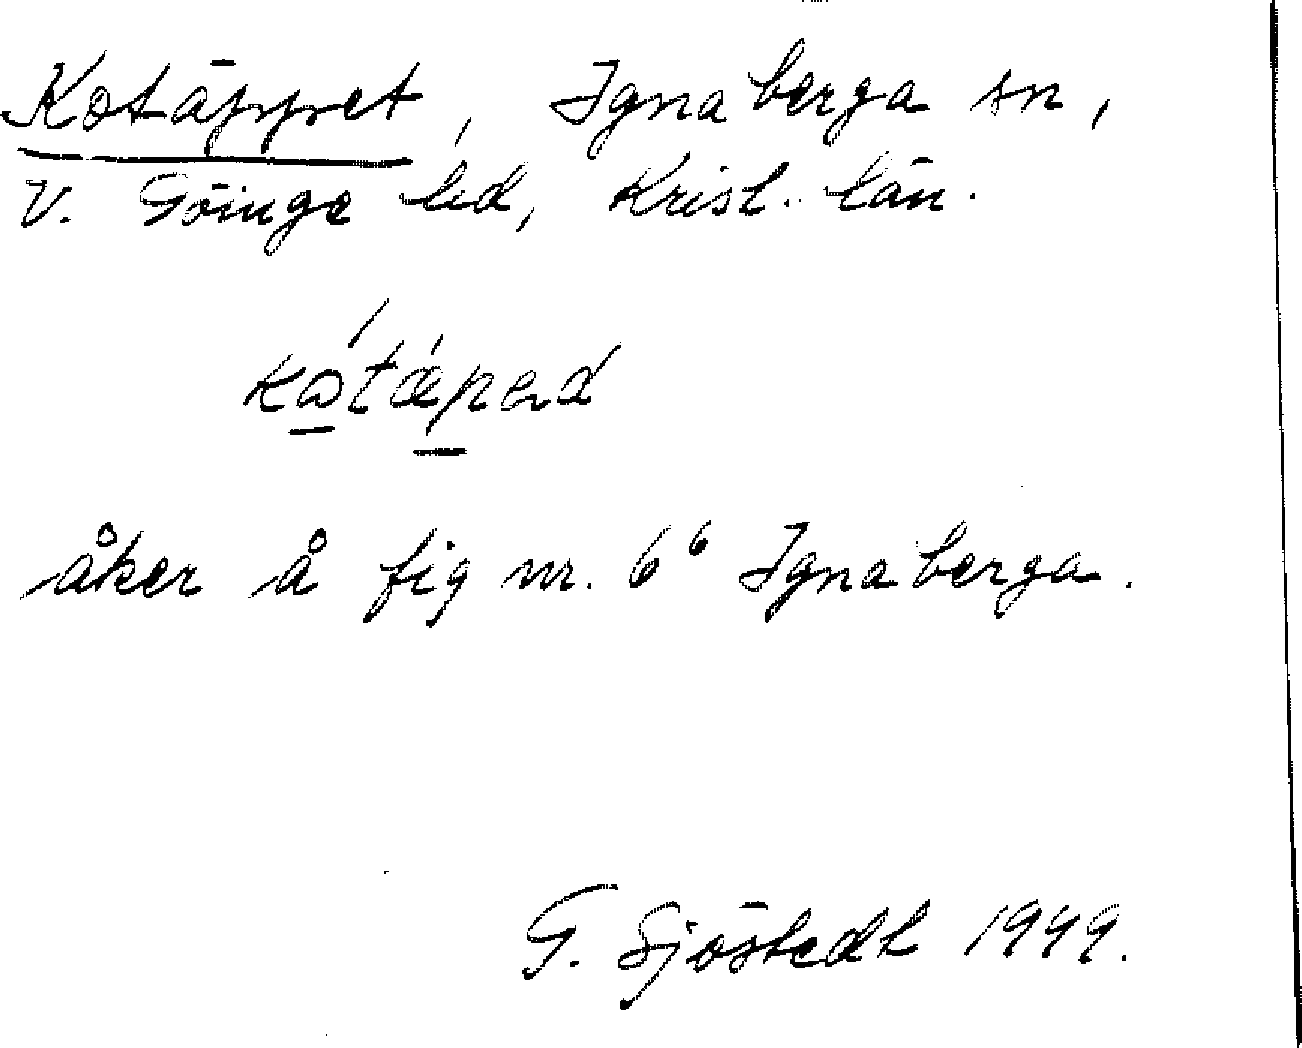 Kotäppet, Ignaberga sn,
V. Göinge hd, Krist. län.
åker å fig nr. 6⁶ Ignaberga.
G. Sjöstedt 1949.